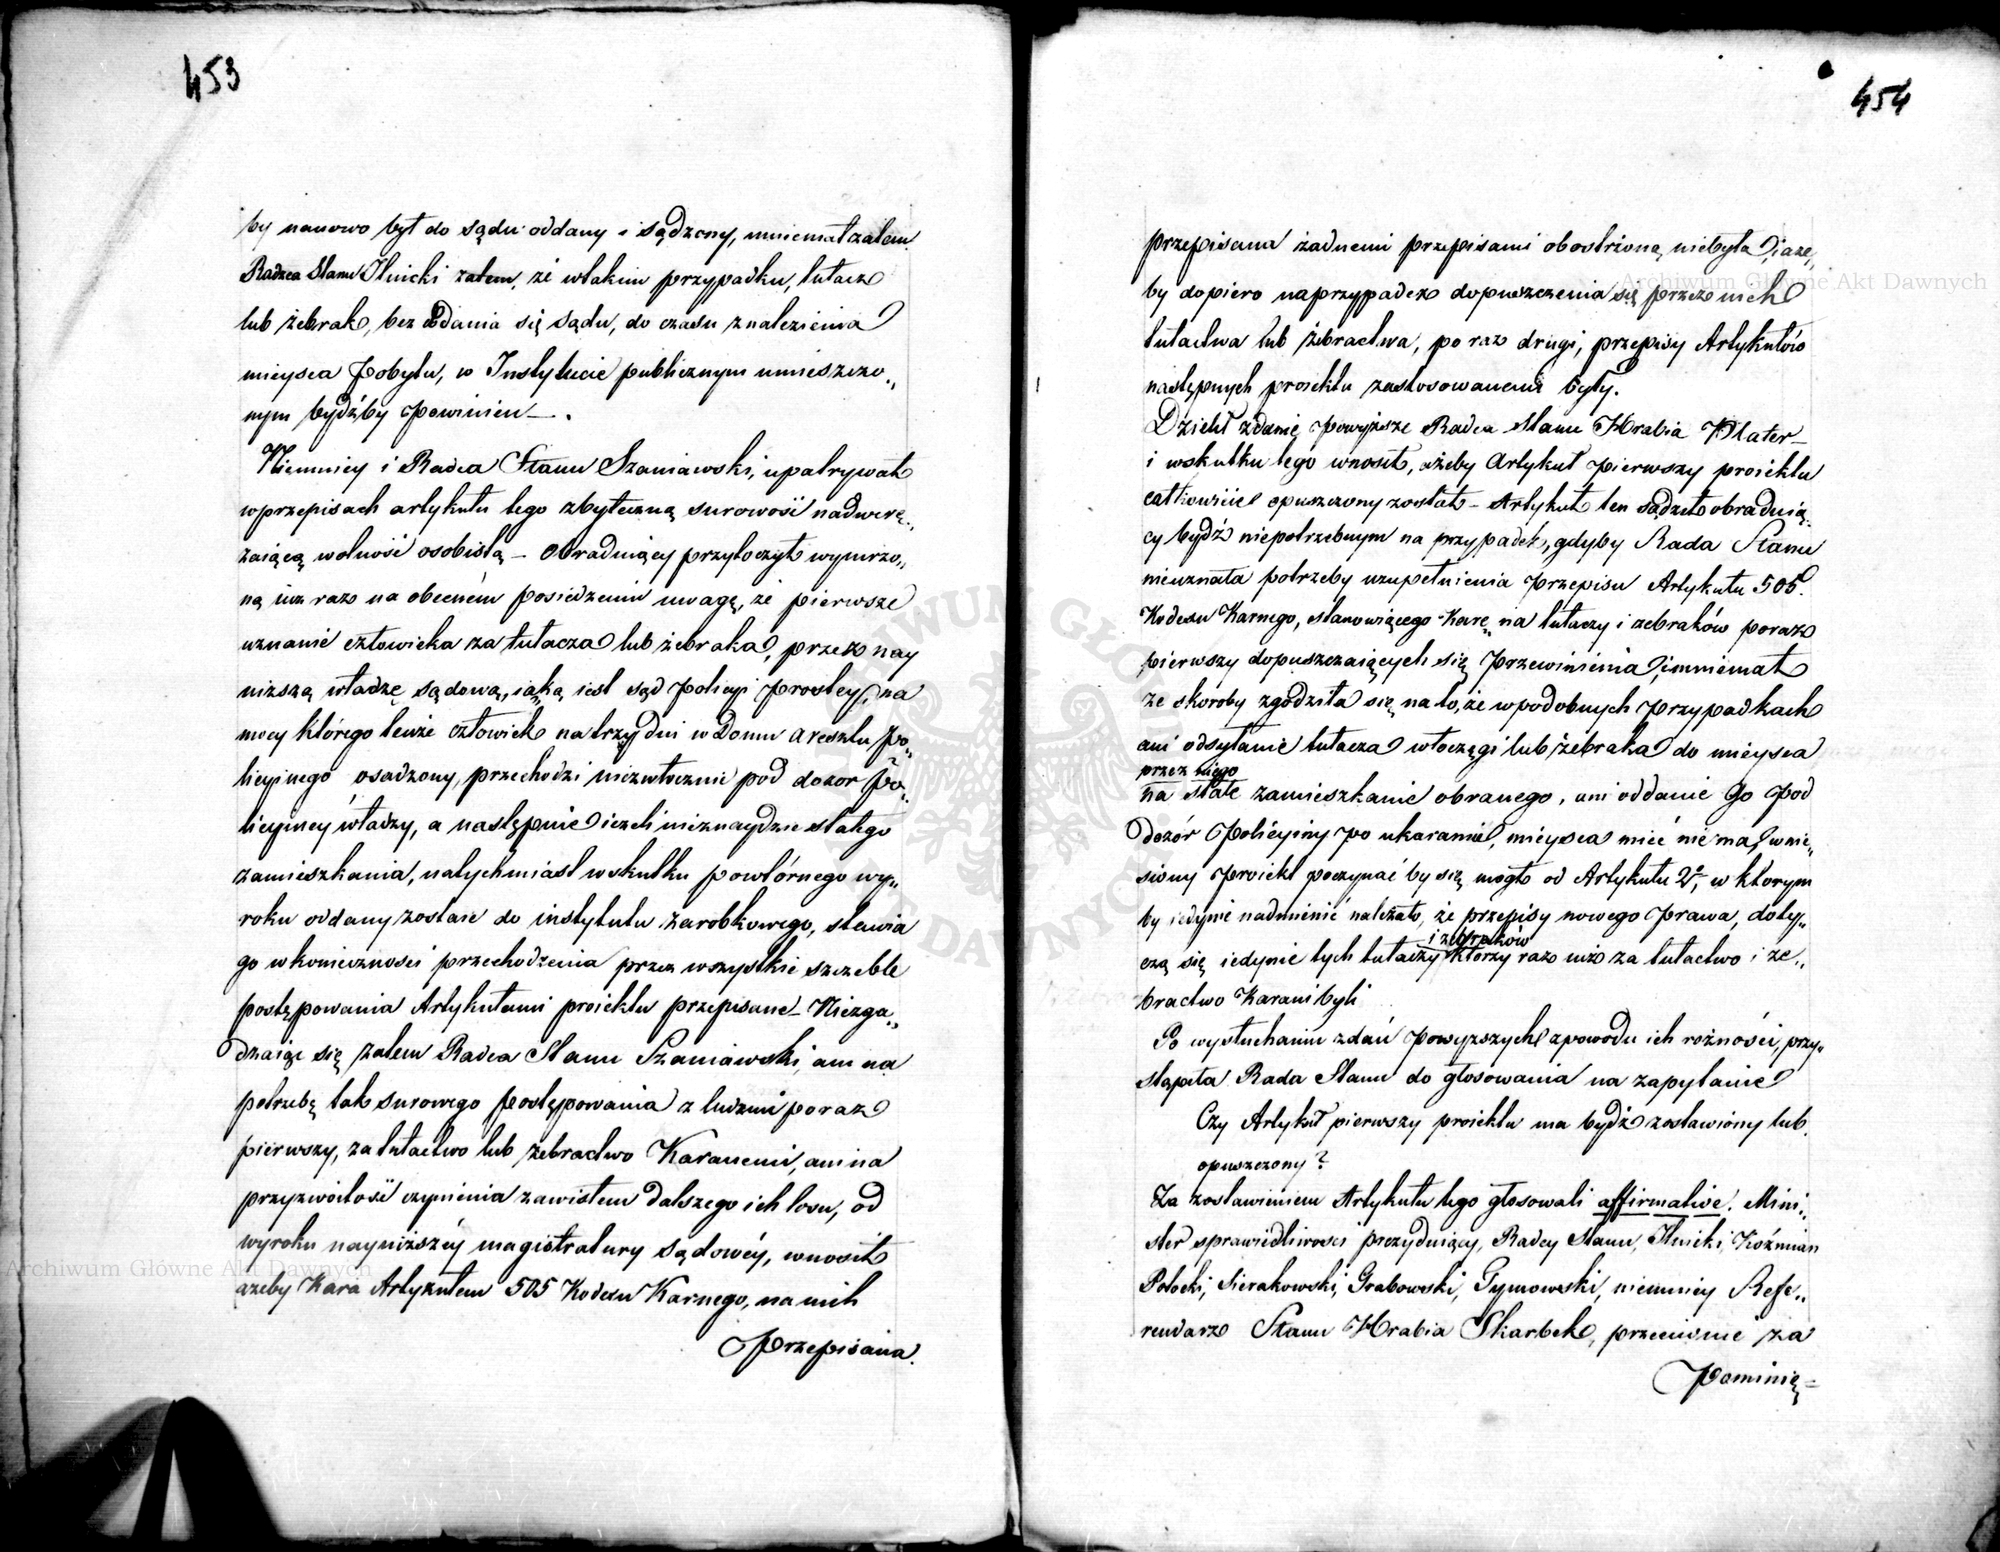 453
by nanowo był do sądu oddany i sądzony, mniemał zatem
Radzca Stanu Ilnicki zatem, że wtakim przypadku, tułacz
lub żebrak, bez oddania się sądu, do czasu znalezienia
mieysca pobytu, w Instytucie publicznym umieszczo„
nym bydźby powinien —.
Niemniey i Radca Stanu Szaniawski, upatrywał
wprzepisach artykułu tego zbyteczną surowość nadwerę„
żaiącą wolność osobistą – Obraduiący przytoczył wyrzeczo„
ną iuż raz na obecném posiedzeniu uwagę, że pierwsze
uznanie człowieka za tułacza lub żebraka, przez nay
niższą władzę sądową, iaką iest sąd policyi prostey, na
mocy którego tenże człowiek na trzy dni w Domu aresztu po„
licyinego osadzony, przechodzi niezwłocznie pod dozor Po„
licyiney władzy, a następnie ieżeli nieznaydzie stałego
zamieszkania, natychmiast wskutku powtórnego wy„
roku oddany zostaie do instytutu zarobkowego, stawia
go w konieczności przechodzenia przez wszystkie szczeble
postępowania Artykułami proiektu przepisane – Niezga„
dzaiąc się zatem Radca Stanu Szaniawski, ani na
potrzebę tak surowego postępowania z ludzmi po raz
pierwszy, za tułactwo lub żebractwo Karanemi, ani na
przyzwoitość czynienia zawisłem dalszego ich losu, od
wyroku nayniższéy magistratury sądowéy, wnosił
ażeby Kara Artykułem 505 Kodexu Karnego, na nich
Przepisana.
454
przepisana żadnemi przepisami obostrzoną niebyła, i aże„
by dopiero naprzypadek dopuszczenia się przez nich
tułactwa lub żebractwa, po raz drugi, przepisy Artykułów
następnych proiektu zastosowanemi były.
Dzielił zdanie powyższe Radca Stanu Hrabia Plater –
i wskutku tego wnosił, ażeby Artykuł pierwszy proiektu
całkowicie opuszczony został – Artykuł ten sądził obraduią„
cy bydź niepotrzebnym na przypadek, gdyby Rada Stanu
nieuznała potrzeby uzupełnienia przepisu Artykułu 505.
Kodexu Karnego, stanowiącego Karę na tułaczy i żebraków poraz
pierwszy dopuszczaiących się przewinienia, i mniemał
że skoroby zgodziła się na to, że w podobnych przypadkach
ani odsyłanie tułacza włoczęgi lub żebraka do mieysca
przez niego
na stałe zamieszkanie obranego, ani oddanie Go pod
dozór Policyiny po ukaraniu, mieysca mieć nie ma, wnie„
siony proiekt poczynać by się mógł od Artykułu 2°, w ktorym
by iedynie nadmienić należało, że przepisy nowego prawa, doty„
i żebraków
czą się iedynie tych tułaczy którzy raz iuż za tułactwo i że„
bractwo Karani byli
Po wysłuchaniu zdań powyższych z powodu ich rożności, przy„
stąpiła Rada Stanu do głosowania na zapytanie
Czy Artykuł pierwszy proiektu ma bydź zostawiony lub
opuszczony?
Za zostawieniem Artykułu tego głosowali affirmative. Mini„
ster sprawiedliwości prezyduiący, Radcy Stanu, Ilnicki Koźmian
Potocki, Sierakowski, Grabowski, Gymowski, niemniey Refe„
rendarz Stanu Hrabia Skarbek, przeciwnie za
Pominię=
Archiwum Główne Akt Dawnych